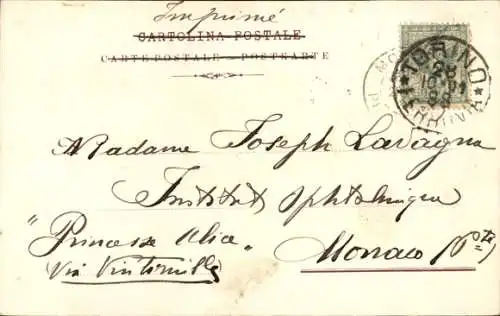 Imprimé
CARTOLINA POSTALE
CARTE POSTALE - POSTKARTE
TORINO
FERROVIA
Madame Joseph Lavagna
Institut Ophtalmique
"Princesse Alice"
Monaco (Pté)
Via Vintimille